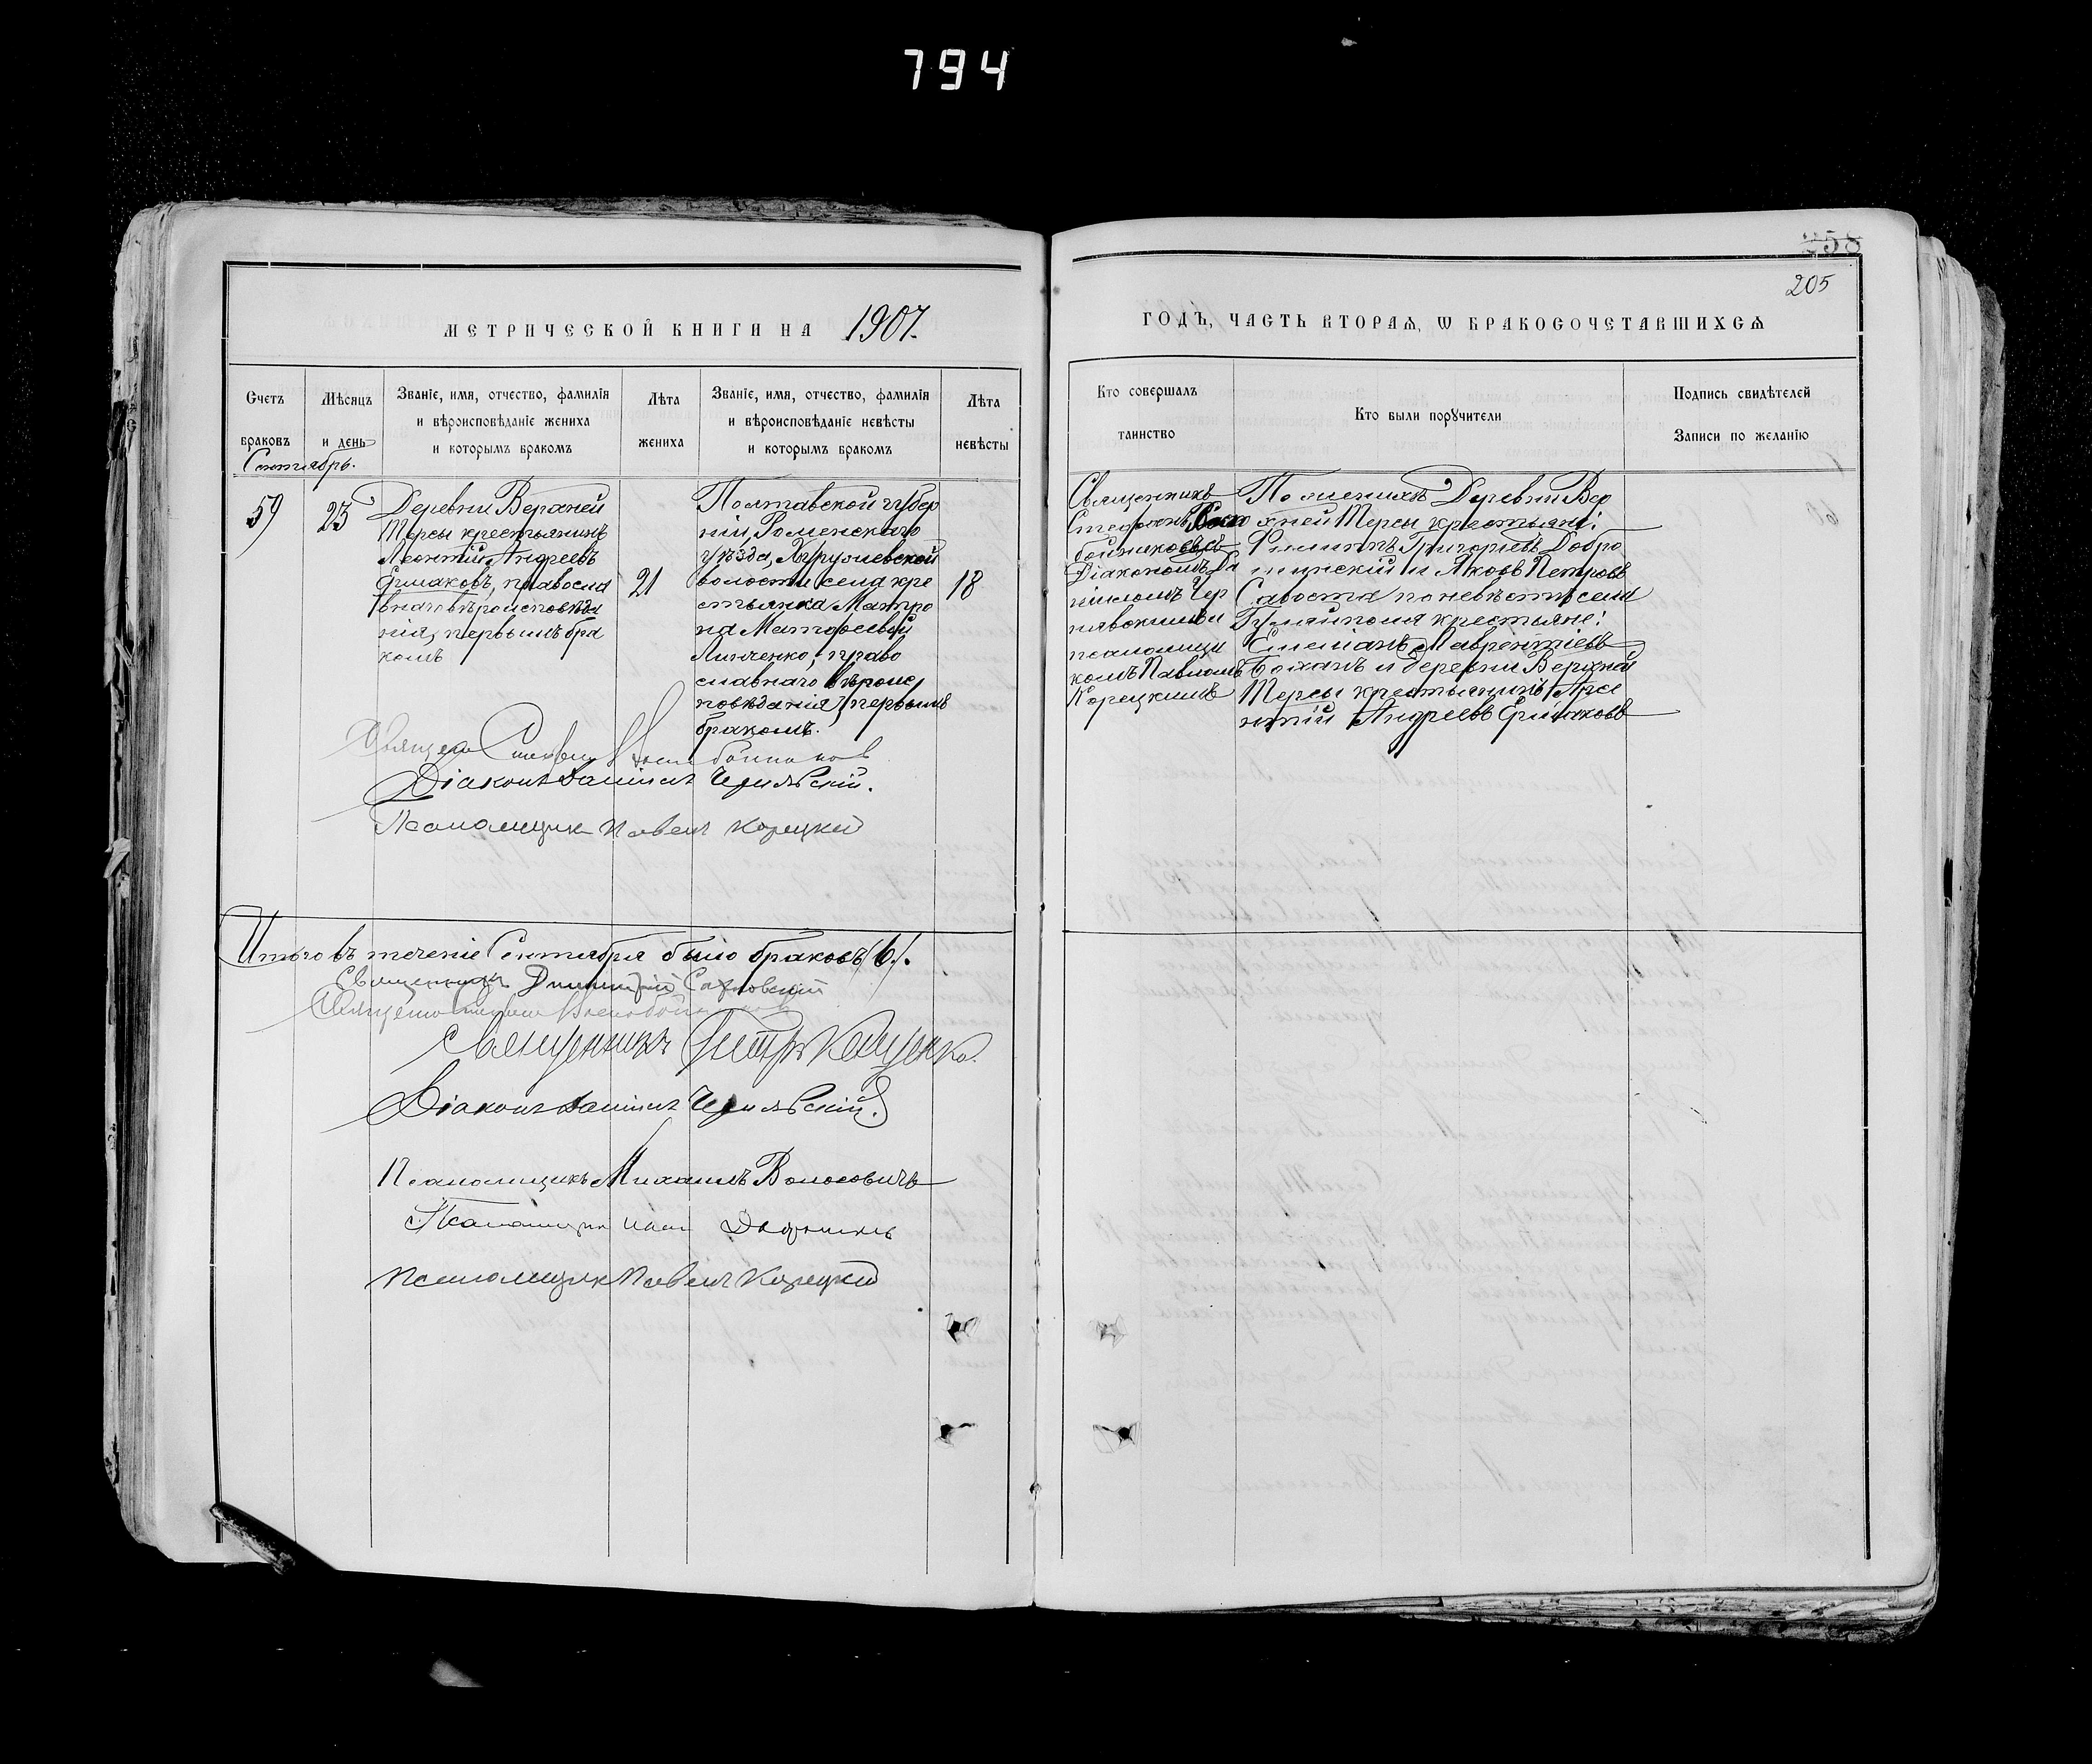 794
258
205
МЕТРИЧЕСКОЙ КНИГИ НА 1907.
ГОДЪ, ЧАСТЬ ВТОРАѦ, Ѡ БРАКОСОЧЕТАВШИХСѦ
Счетъ браковъ
Мѣсяцъ и день
Званіе, имя, отчество, фамилія
и вѣроисповѣданіе жениха
и которымъ бракомъ
Лѣта жениха
Званіе, имя, отчество, фамилія
и вѣроисповѣданіе невѣсты
и которымъ бракомъ
Лѣта невѣсты
Кто совершалъ
таинство
Кто были порꙋчители
Подпись свидѣтелей
Записи по желанію
Сентябрь.
59
23
Деревни Верхней
Терсы крестьянинъ
Леонтій Андреевъ
Ермаковъ, правосла
внаго вѣроисповѣда
нія, первымъ бра
комъ
21
Полтавской губер
ніи, Роменскаго
уѣзда,
волости села кре
стьянка Матро
на Матѳеевна
Линченко, право
славнаго вѣроис
повѣданія, первымъ
бракомъ.
18
Священникъ
Стефанъ
Діакономъ Да
ніиломъ Чер
псаломщи
комъ Павломъ
Корецкимъ
По женихѣ Деревни Вер
хней Терсы крестьяне:
Филиппъ Григорьевъ Добро
и Яковъ Петровъ
по невѣстѣ села
Гуляйполя крестьяне:
Емеліанъ Лаврентіевъ
и деревни Верхней
Терсы крестьянинъ Арсе
нтій Андреевъ Ермаковъ
Діаконъ Даніилъ
Псаломщикъ Павелъ Корецкій
Итого въ теченіе Сентября было браковъ (6).
Священникъ Димитрій
Священникъ Петръ Кащенко.
Діаконъ Даніилъ
Псаломщикъ Михаилъ Волосовичъ
Псаломщикъ
Псаломщикъ Павелъ Корецкій